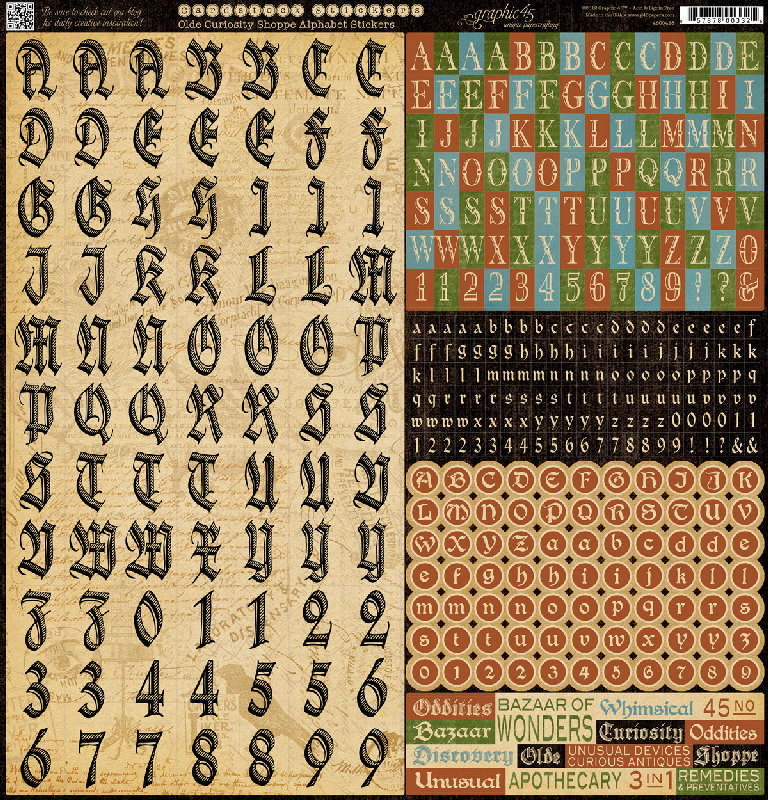 Be sure to check out our blog
for daily creative inspiration!
Cardstock Stickers
Olde Curiosity Shoppe Alphabet Stickers
graphic 45
A A A B B C C
D D E E E F F
G G H H I I I
J J K K L L M
M N N O O O P
P Q Q R R S S
S T T T U U V
V W W X Y Y Y
Z Z 0 1 1 2 2
3 3 4 4 5 5 6
6 7 7 8 8 9 9
A A A A B B B C C C D D D E
E E E F F F G G G H H H I I
I J J J K K K L L L M M M N
N N O O O O P P P Q Q R R R
S S S S T T T U U U U V V V
W W W X X X Y Y Y Y Z Z Z 0
1 1 2 2 3 4 5 6 7 8 9 ! ? &
a a a a a b b b b c c c c d d d d e e e e e f
f f f g g g g h h h h i i i i i j j j j k k k
k l l l l m m m m n n n n o o o o o p p p p q
q q r r r r s s s s s t t t t u u u u v v v v
w w w w x x x x y y y y y z z z z 0 0 0 0 1 1
1 2 2 2 3 3 3 4 4 4 5 5 5 6 6 7 7 8 8 9 9 ! ! ? & &
A B C D E F G H I J K
L M N O P Q R S T U V
W X Y Z a a b c d d e
e f g h h i i j k l l
m m n n o o p q r r s
s t t u u v w x y y z
0 1 2 3 4 5 6 7 8 9
Oddities BAZAAR OF Whimsical 45 NO
Bazaar WONDERS Curiosity Oddities
Discovery Olde UNUSUAL DEVICES CURIOUS ANTIQUES Shoppe
Unusual APOTHECARY 3 IN 1 REMEDIES & PREVENTATIVES